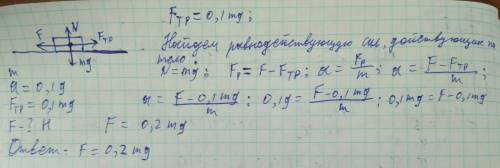 Fтр = 0,1mg;
Найдем равнодействующую сил, действующих на
тело:
N = mg; Fр = F - Fтр; a = Fр/m; a = F - Fтр/m
a = F - 0,1mg/m; 0,1g = F - 0,1mg/m; 0,1mg = F - 0,1mg
F = 0,2mg
N
F
Fтр
mg
m
a = 0,1g
Fтр = 0,1mg
F - ? Н
Ответ - F = 0,2mg